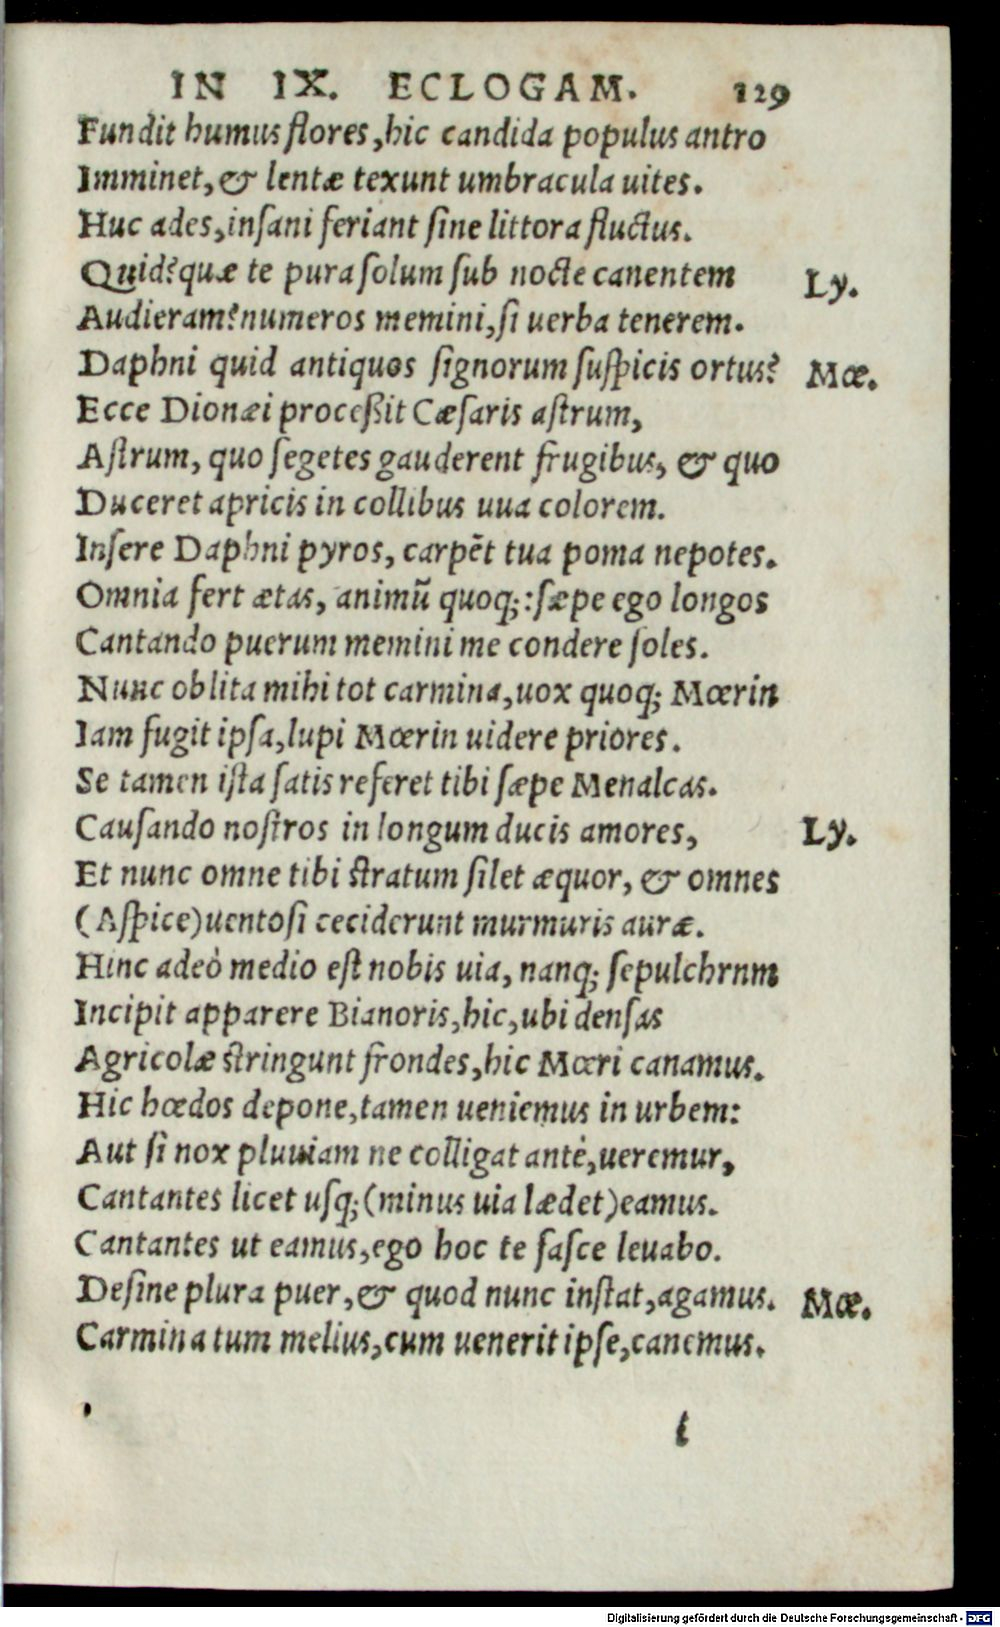 IN IX. ECLOGAM. 129
Fundit humus flores, hic candida populus antro
Imminet, & lentæ texunt umbracula uites.
Huc ades, inſani feriant ſine littora fluctus.
Quid? quæ te pura ſolum ſub nocte canentem Ly.
Audieram? numeros memini, ſi uerba tenerem.
Daphni quid antiquos ſignorum ſuſpicis ortus? Mœ.
Ecce Dionæi proceßit Cæſaris aſtrum,
Aſtrum, quo ſegetes gauderent frugibus, & quo
Duceret apricis in collibus uua colorem.
Inſere Daphni pyros, carpēt tua poma nepotes.
Omnia fert ætas, animū quoq;: ſæpe ego longos
Cantando puerum memini me condere ſoles.
Nunc oblita mihi tot carmina, uox quoq; Mœrin
Iam fugit ipſa, lupi Mœrin uidere priores.
Se tamen iſta ſatis referet tibi ſæpe Menalcas.
Cauſando noſtros in longum ducis amores, Ly.
Et nunc omne tibi ſtratum ſilet æquor, & omnes
(Aſpice) uentoſi ceciderunt murmuris auræ.
Hinc adeò medio eſt nobis uia, nanq; ſepulchrnm
Incipit apparere Bianoris, hic, ubi denſas
Agricolæ ſtringunt frondes, hic Mœri canamus.
Hic hœdos depone, tamen ueniemus in urbem:
Aut ſi nox pluuiam ne colligat antè, ueremur,
Cantantes licet uſq; (minus uia lædet) eamus.
Cantantes ut eamus, ego hoc te faſce leuabo.
Deſine plura puer, & quod nunc inſtat, agamus. Mœ.
Carmina tum melius, cum uenerit ipſe, canemus.
Digitalisierung gefördert durch die Deutsche Forschungsgemeinschaft - DFG